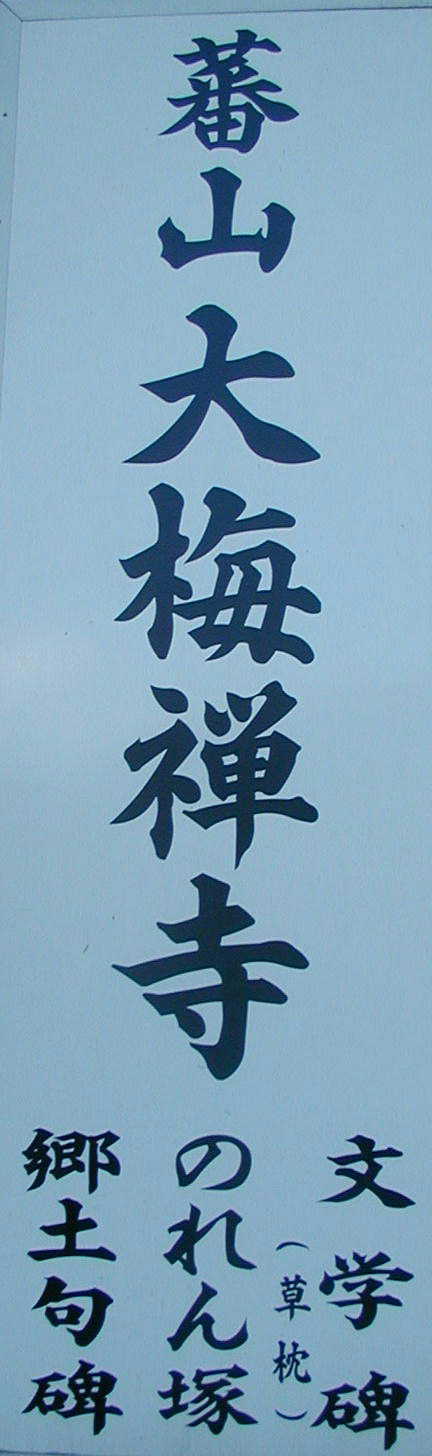 蕃山
大梅禅寺
文学碑
（草枕）
のれん塚
郷土句碑